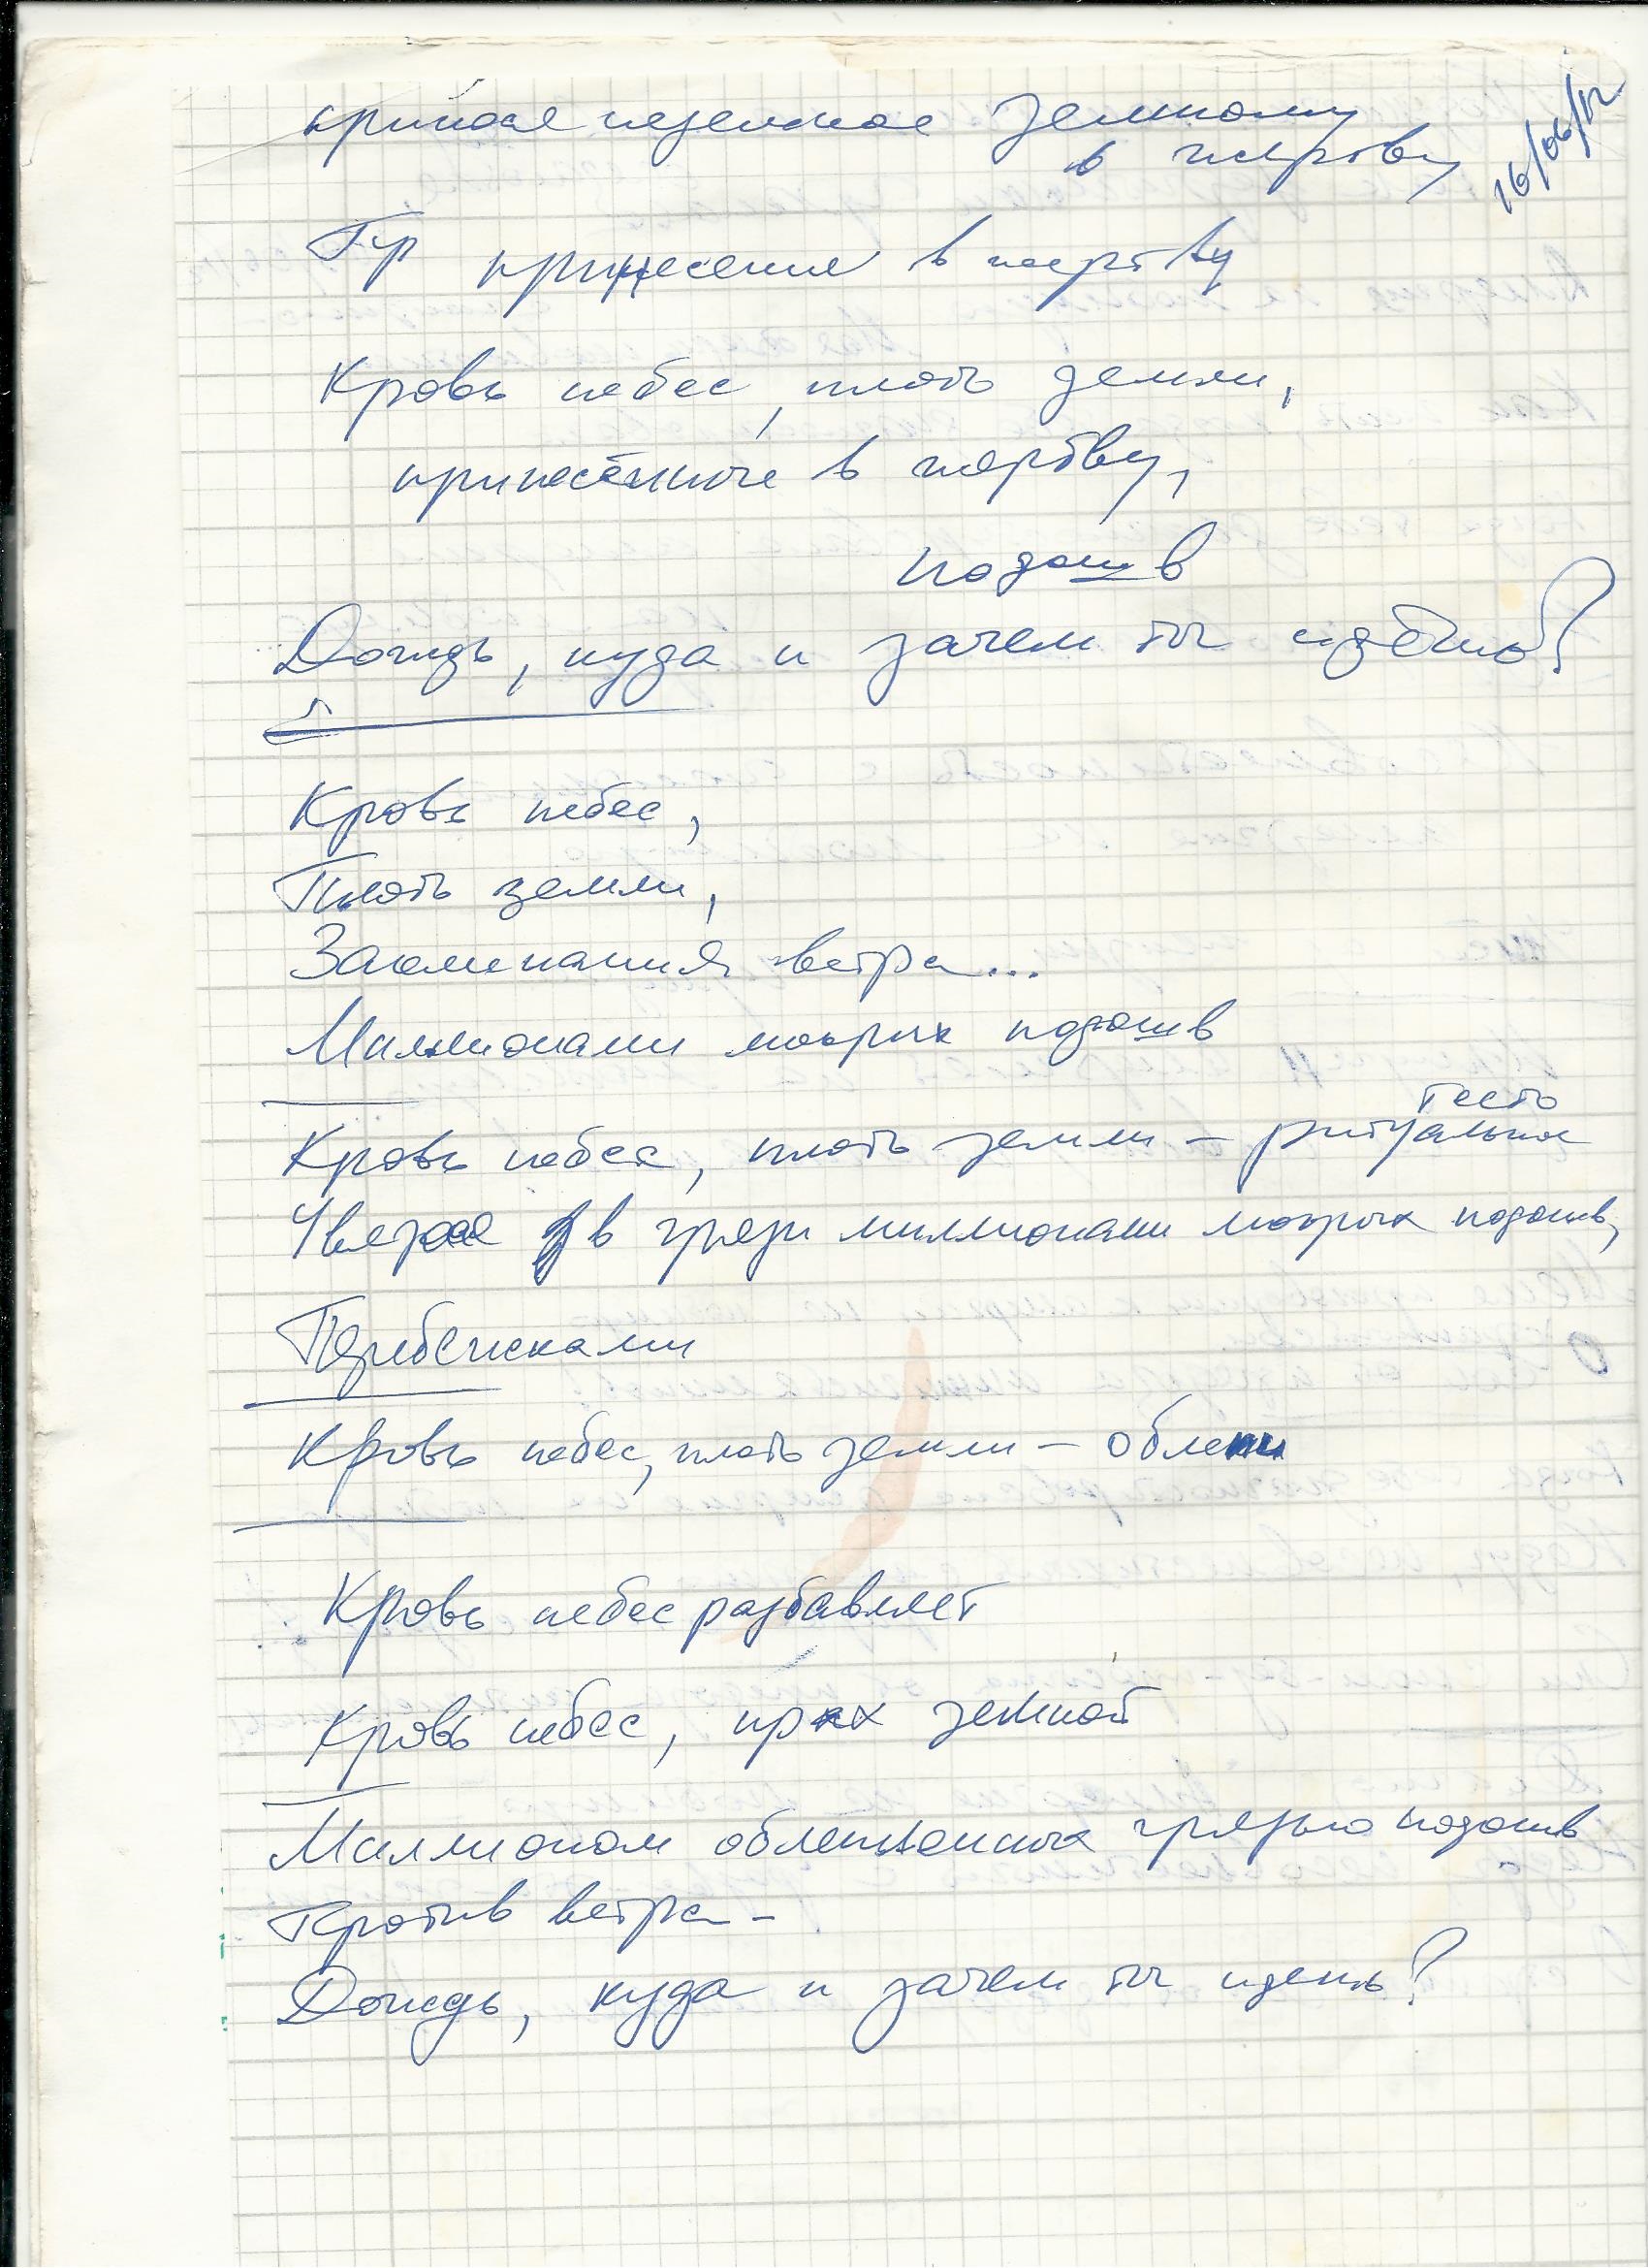 16/06/12
земному
в жертву
принесение в жертву
Кровь небес, плоть земли,
принесённые в жертву,
подошв
Дождь, куда и зачем ты идёшь?
Кровь небес,
Плоть земли,
Заклинания ветра...
Миллионами мокрых подошв
тесто
Кровь небес, плоть земли – ритуальное
Увязает в грязи миллионами мокрых подошв,
Кровь небес, плоть земли – облепи
Кровь небес разбавляет
Кровь небес, прах земной
Миллионом облепленных грязью подошв
Против ветра –
Дождь, куда и зачем ты идешь?